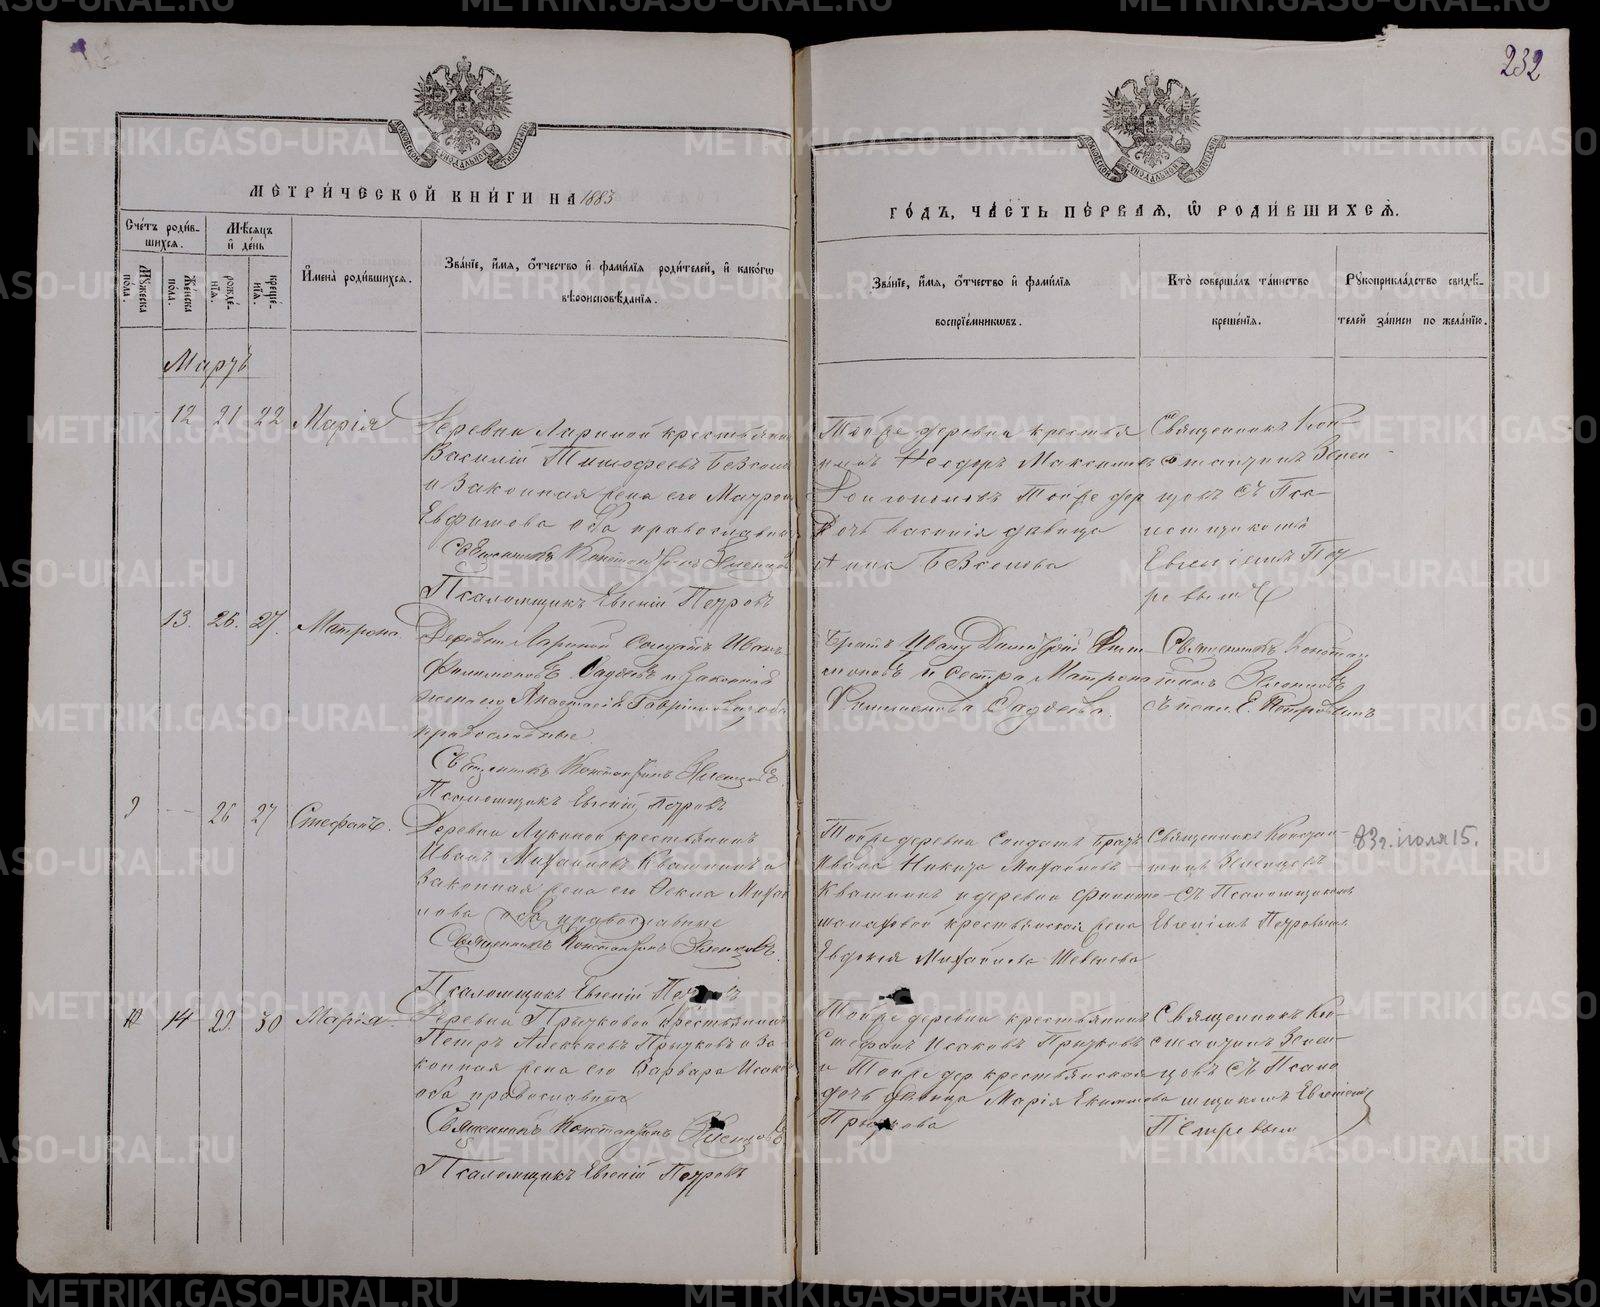 232
МЕТРИ́ЧЕСКОЙ КНИ́ГИ НА 1883
ГО́ДЪ, ЧА́СТЬ ПЕ́РВАЯ, Ѡ РОДИ́ВШИХСЯ.
Сче́тъ роди́в-
шихся.
Мѣ́сяцъ
и҆ де́нь
Му́жеска
по́ла.
Же́нска
по́ла.
рожде́-
нїѧ.
креще́-
нїѧ.
И҆мена̀ роди́вшихся.
Зва́нїе, и҆́мѧ, о҆́тчество и҆ фами́лїѧ роди́телей, и҆ како́гѡ
вѣроисповѣ́данїѧ.
Зва́нїе, и҆́мѧ, о҆́тчество и҆ фами́лїѧ
воспрїе́мникѡвъ.
Кто̀ соверша́лъ та́инство
креще́нїѧ.
Рꙋкоприкла́дство свидѣ́-
телей за́писи по жела́нїю.
Мартъ
12 21 22 Марія
Деревни Лариной крестьянинъ
Василій Тимофеевъ
и законная жена его
Евфимова оба православные
Священникъ Константинъ Зеленцовъ
Псаломщикъ Евгеній Петровъ
Тойже деревни крестья
нинъ Ѳеодоръ Максимовъ
Тойже дер
дочь Василія девица
Анна
Священникъ Кон-
стантинъ Зелен-
цовъ съ Пса-
ломщикомъ
Евгеніемъ Пет
ровымъ
13. 26. 27. Матрона.
Деревни Лариной Солдатъ Иванъ
Филимоновъ Садыевъ и законная
жена его Анастасія Гавріилова оба
православные
Священникъ Константинъ Зеленцовъ
Псаломщикъ Евгеній Петровъ
Братъ Ивану Димитрій Фили
моновъ и сестра Матрона
Филимонова Садыева.
Священникъ Констан
тинъ Зеленцовъ
съ псал. Е. Петровымъ
9 — 26 27 Стефанъ.
Деревни Лукиной крестьянинъ
Иванъ Михайловъ Квашнинъ и
законная жена его Ѳекла Михай
лова оба православные
Священникъ Константинъ Зеленцовъ.
Псаломщикъ Евгеній Петровъ
Тойже деревни Солдатъ братъ
Ивана Никита Михайловъ
Квашнинъ и деревни
крестьянская жена
Евдокія Михайлова Шевелева
Священникъ Констан-
тинъ Зеленцовъ
съ Псаломщикомъ
Евгеніемъ Петровымъ
83 г. іюля 15.
14 29. 30 Марія
Деревни Прытковой крестьянинъ
Петръ Алексѣевъ Прытковъ и за-
конная жена его Варвара Исакова
оба православные
Священникъ Константинъ Зеленцовъ
Псаломщикъ Евгеній Петровъ
Тойже деревни крестьянинъ
Стефанъ Исаковъ Прытковъ
и Тойже дер крестьянская
дочь девица Марія Екимова
Прыткова
Священникъ Кон
стантинъ Зелен-
цовъ съ Псало
мщикомъ Евгеніемъ
Петровымъ